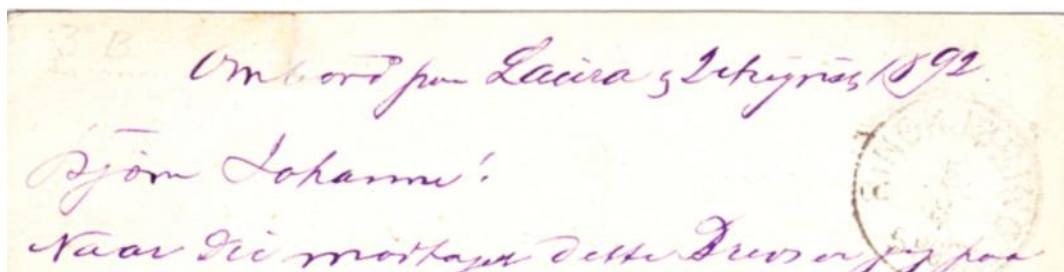 3 B
Ombord paa Laura 1892.
Kjære Johanne!
Naar De modtager dette Brev er jeg paa